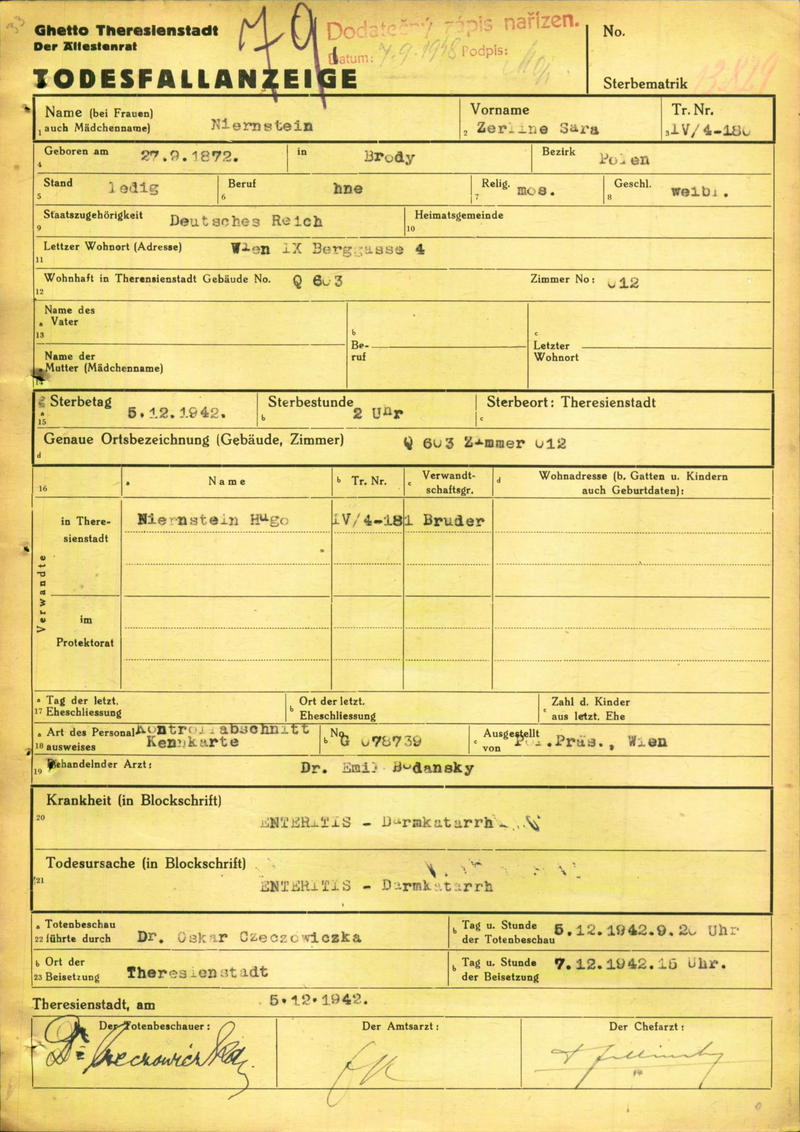 Ghetto Theresienstadt
Der Ältestenrat
TODESFALLANZEIGE
79
Dodatečný zápis nařízen.
Datum: 7.9.1948 Podpis:
No.
Sterbematrik
Name (bei Frauen) 1 auch Mädchenname) Niernstein
Vorname 2 Zerline Sara
Tr. Nr. 3 IV/4-180
4 Geboren am 27.9.1872. in Brody Bezirk Polen
5 Stand ledig 6 Beruf hne 7 Relig. mos. 8 Geschl. weibl.
9 Staatszugehörigkeit Deutsches Reich 10 Heimatsgemeinde
11 Lettzer Wohnort (Adresse) Wien IX Berggasse 4
12 Wohnhaft in Therensienstadt Gebäude No. Q 603 Zimmer No: 012
13 Name des a Vater
b Beruf
c Letzter Wohnort
14 Name der Mutter (Mädchenname)
15 a Sterbetag 5.12.1942. b Sterbestunde 2 Uhr c Sterbeort: Theresienstadt
d Genaue Ortsbezeichnung (Gebäude, Zimmer) Q 603 Zimmer 012
16 a Name b Tr. Nr. c Verwandt-schaftsgr. d Wohnadresse (b. Gatten u. Kindern auch Geburtdaten):
Verwandte
in There-sienstadt Niernstein Hugo IV/4-181 Bruder
im Protektorat
17 a Tag der letzt. Eheschliessung b Ort der letzt. Eheschliessung c Zahl d. Kinder aus letzt. Ehe
18 a Art des Personalausweises Kontrollabschnitt Kennkarte b No. G 078739 c Ausgestellt von Pol.Präs., Wien
19 Behandelnder Arzt: Dr. Emil Budansky
20 Krankheit (in Blockschrift)
ENTERITIS - Darmkatarrh
21 Todesursache (in Blockschrift)
ENTERITIS - Darmkatarrh
22 a Totenbeschau führte durch Dr. Oskar Czeczowiczka b Tag u. Stunde der Totenbeschau 5.12.1942.9.20 Uhr
23 b Ort der Beisetzung Theresienstadt b Tag u. Stunde der Beisetzung 7.12.1942.15 Uhr.
Theresienstadt, am 5.12.1942.
Der Totenbeschauer: Der Amtsarzt: Der Chefarzt:
Dr Czeczowiczka